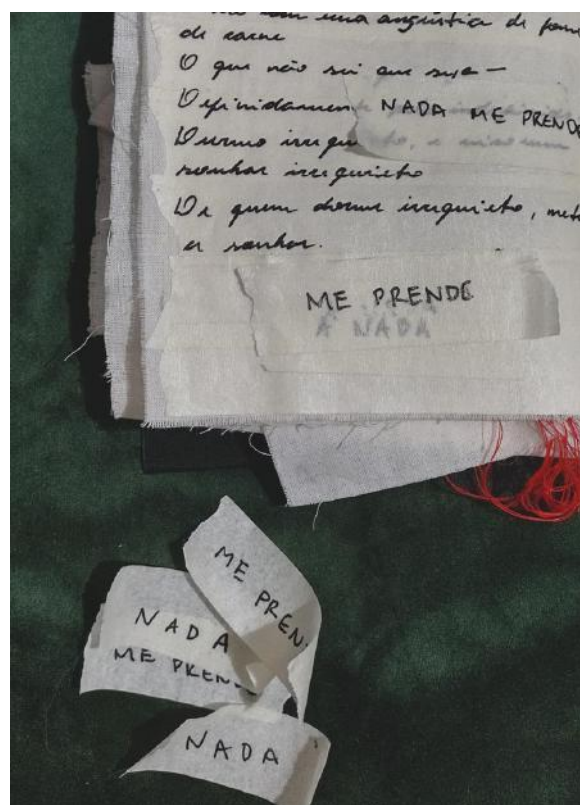 com uma angústia de fome
de carne
O que não sei que seja —
Definidamen NADA ME PRENDE
Durmo irrequ to, e
sonhar irrequieto
De quem dorme irrequieto, met
a sonhar.
ME PRENDE
A NADA
ME
PREN
NADA
ME PREND
NADA